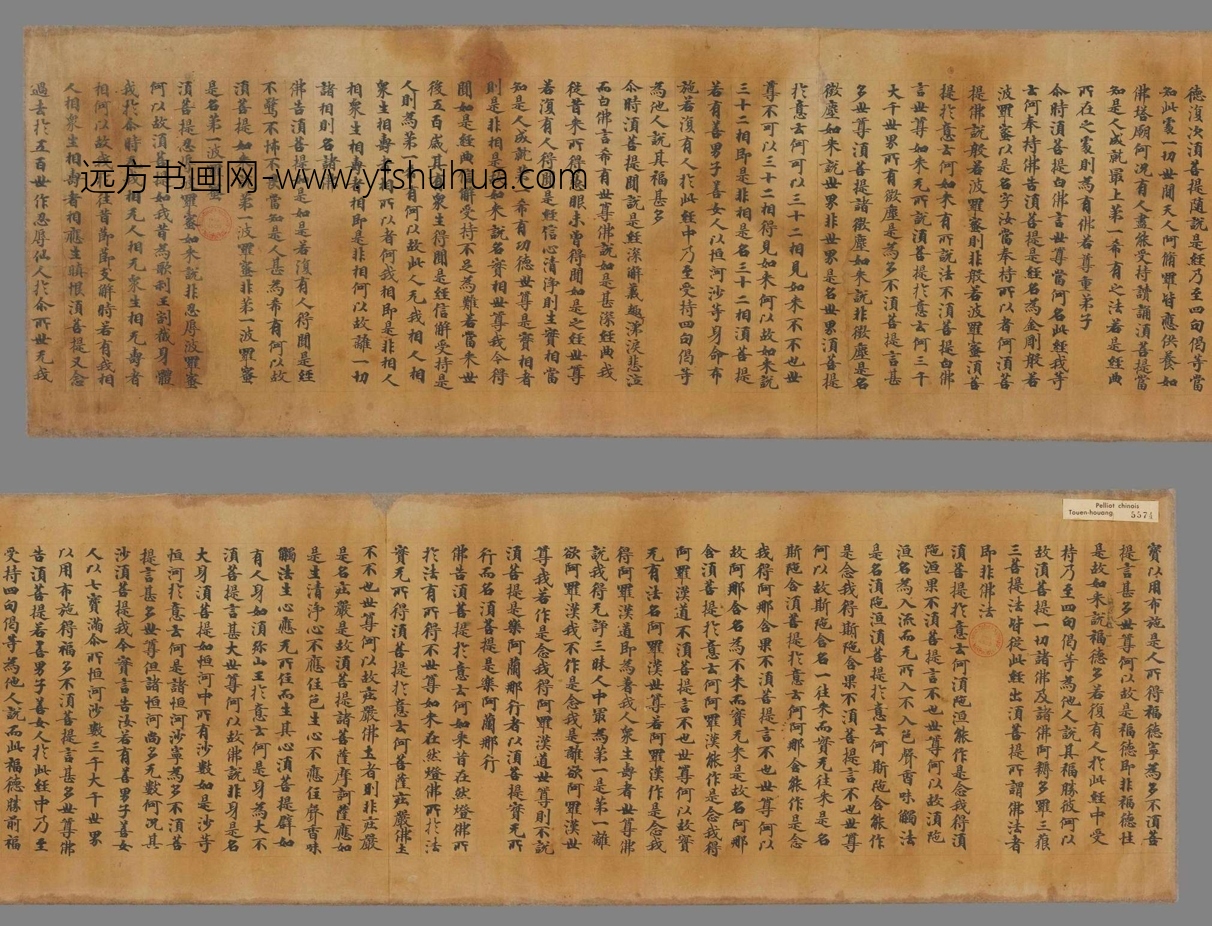 德復次須菩提隨說是經乃至四句偈等當
知此處一切世間天人阿脩羅皆應供養如
佛塔廟何況有人盡能受持讀誦須菩提當
知是人成就最上第一希有之法若是經典
所在之處則為有佛若尊重弟子
尒時須菩提白佛言世尊當何名此經我等
云何奉持佛告須菩提是經名為金剛般若
波羅蜜以是名字汝當奉持所以者何須菩
提佛說般若波羅蜜則非般若波羅蜜須菩
提於意云何如來有所說法不須菩提白佛
言世尊如來无所說須菩提於意云何三千
大千世界所有微塵是為多不須菩提言甚
多世尊須菩提諸微塵如來說非微塵是名
微塵如來說世界非世界是名世界須菩提
於意云何可以三十二相見如來不不也世
尊不可以三十二相得見如來何以故如來說
三十二相即是非相是名三十二相須菩提
若有善男子善女人以恒河沙等身命布
施若復有人於此經中乃至受持四句偈等
為他人說其福甚多
尒時須菩提聞說是經深解義趣涕淚悲泣
而白佛言希有世尊佛說如是甚深經典我
從昔來所得慧眼未曾得聞如是之經世尊
若復有人得聞是經信心清淨則生實相當
知是人成就第一希有功德世尊是實相者
則是非相是故如來說名實相世尊我今得
聞如是經典信解受持不足為難若當來世
後五百歲其有眾生得聞是經信解受持是
人則為第一希有何以故此人无我相人相
眾生相壽者相所以者何我相即是非相人
相眾生相壽者相即是非相何以故離一切
諸相則名諸佛
佛告須菩提如是如是若復有人得聞是經
不驚不怖不畏當知是人甚為希有何以故
須菩提如來說第一波羅蜜非第一波羅蜜
是名第一波羅蜜
須菩提忍辱波羅蜜如來說非忍辱波羅蜜
何以故須菩提如我昔為歌利王割截身體
我於尒時无我相无人相无眾生相无壽者
相何以故我於往昔節節支解時若有我相
人相眾生相壽者相應生瞋恨須菩提又念
過去於五百世作忍辱仙人於尒所世无我
远方书画网-www.yfshuhua.com
Pelliot chinois
Touen-houang 5574
寶以用布施是人所得福德寧為多不須菩
提言甚多世尊何以故是福德即非福德性
是故如來說福德多若復有人於此經中受
持乃至四句偈等為他人說其福勝彼何以
故須菩提一切諸佛及諸佛阿耨多羅三藐
三菩提法皆從此經出須菩提所謂佛法者
即非佛法
須菩提於意云何須陁洹能作是念我得須
陁洹果不須菩提言不也世尊何以故須陁
洹名為入流而无所入不入色聲香味觸法
是名須陁洹須菩提於意云何斯陁含能作
是念我得斯陁含果不須菩提言不也世尊
何以故斯陁含名一往來而實无往來是名
斯陁含須菩提於意云何阿那含能作是念
我得阿那含果不須菩提言不也世尊何以
故阿那含名為不來而實无來是故名阿那
含須菩提於意云何阿羅漢能作是念我得
阿羅漢道不須菩提言不也世尊何以故實
无有法名阿羅漢世尊若阿羅漢作是念我
得阿羅漢道即為著我人眾生壽者世尊佛
說我得无諍三昧人中最為第一是第一離
欲阿羅漢我不作是念我是離欲阿羅漢世
尊我若作是念我得阿羅漢道世尊則不說
須菩提是樂阿蘭那行者以須菩提實无所
行而名須菩提是樂阿蘭那行
佛告須菩提於意云何如來昔在然燈佛所
於法有所得不世尊如來在然燈佛所於法
實无所得須菩提於意云何菩薩莊嚴佛土
不不也世尊何以故莊嚴佛土者則非莊嚴
是名莊嚴是故須菩提諸菩薩摩訶薩應如
是生清淨心不應住色生心不應住聲香味
觸法生心應无所住而生其心須菩提辟如
有人身如須弥山王於意云何是身為大不
須菩提言甚大世尊何以故佛說非身是名
大身須菩提如恒河中所有沙數如是沙等
恒河於意云何是諸恒河沙寧為多不須菩
提言甚多世尊但諸恒河尚多无數何況其
沙須菩提我今實言告汝若有善男子善女
人以七寶滿尒所恒河沙數三千大千世界
以用布施得福多不須菩提言甚多世尊佛
告須菩提若善男子善女人於此經中乃至
受持四句偈等為他人說而此福德勝前福